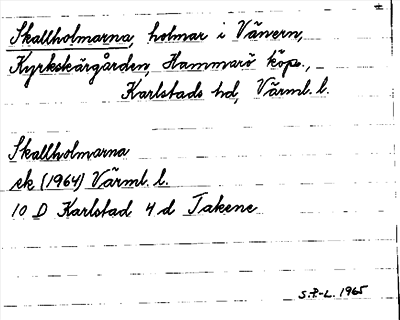 Skallholmarna, holmar i Vänern,
Kyrkskärgården, Hammarö köp.,
Karlstads hd, Värml. l.
Skallholmarna
ek (1964) Värml. l.
10 D Karlstad 4 d Takene
S.P-L. 1965